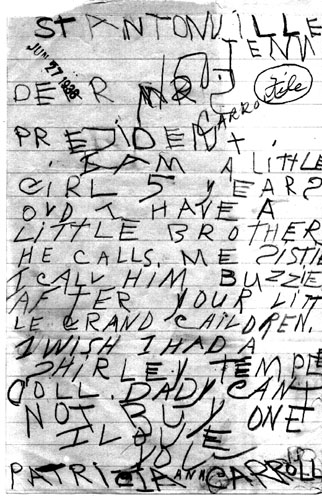 ST ANTONVILLE
TENN
JUN 27 1938
DEER MR
File
CARRO
PREZIDENT.
I BAM A LITTLE
GIRL 5 YEARS
OVD I HAVE A
LITTLE BROTHER
HE CALLS. ME SISTIE
I CALL HIM BUZZIE
AFTER YOUR LITT
LE GRAND CAILDREN.
I WISH I HAD A
SHIRLEY TEMPLE
DOLL. DADY CANT
NOT BUY ONE
I LOVE
YOU
PATRICIA ANN CARROLL